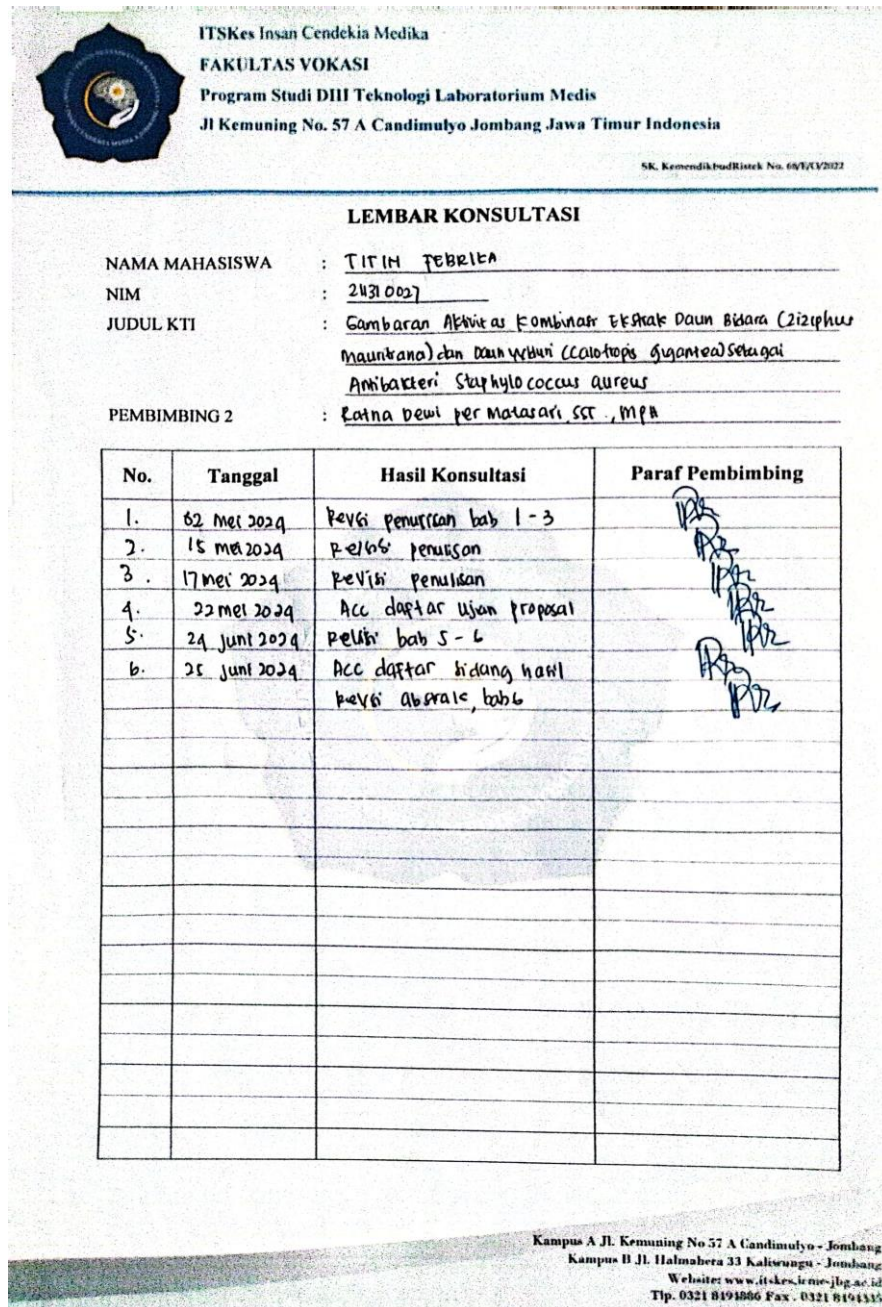 ITSKes Insan Cendekia Medika
FAKULTAS VOKASI
Program Studi DIII Teknologi Laboratorium Medis
Jl Kemuning No. 57 A Candimulyo Jombang Jawa Timur Indonesia
SK. KemendikbudRistek No. 68/E/O/2022
LEMBAR KONSULTASI
NAMA MAHASISWA : TITIN FEBRIKA
NIM : 211310027
JUDUL KTI : Gambaran Aktivitas Kombinasi Ekstrak Daun Bidara (Ziziphus
Mauritiana) dan Daun Widuri (Calotropis gigantea) Sebagai
Antibakteri Staphylococcus aureus
PEMBIMBING 2 : Ratna Dewi permatasari, SST., MPH
No. Tanggal Hasil Konsultasi Paraf Pembimbing
1. 02 Mei 2024 Revisi penulisan bab 1 - 3
2. 15 mei 2024 Revisi penulisan
3. 17 mei 2024 Revisi penulisan
4. 22 mei 2024 Acc daftar ujian proposal
5. 24 juni 2024 Revisi bab 5 - 6
6. 25 juni 2024 Acc daftar sidang hasil
Revisi abstrak, bab 6
Kampus A Jl. Kemuning No 57 A Candimulyo - Jombang
Kampus B Jl. Halmahera 33 Kaliwungu - Jombang
Website: www.itskes.icme-jbg.ac.id
Tlp. 0321 8194886 Fax. 0321 8194335